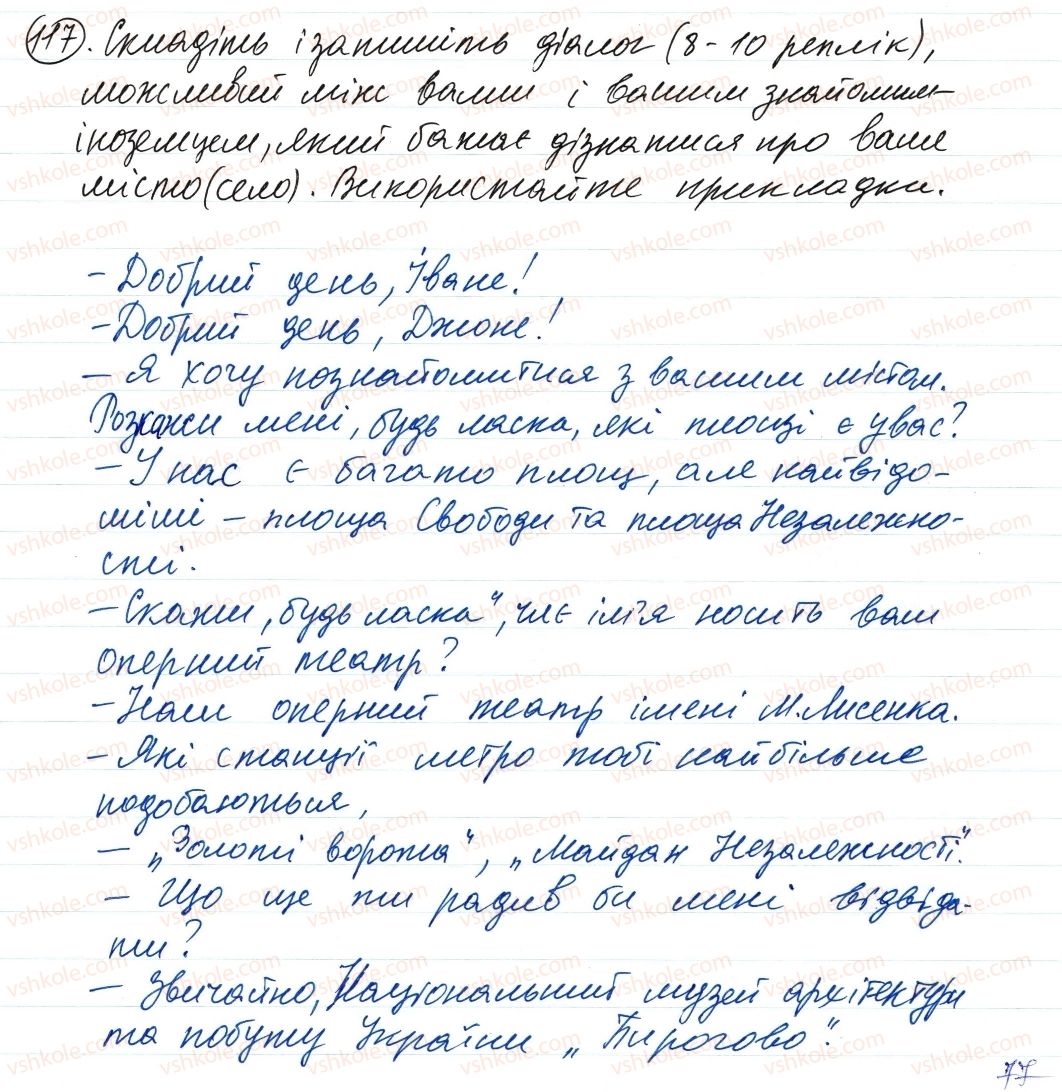 117. Складіть і запишіть діалог (8-10 реплік),
можливий між вами і вашим знайомим
іноземцем, який бажає дізнатися про ваше
місто (село). Використайте прикладки.
- Добрий день, Іване!
- Добрий день, Джоне!
- Я хочу познайомитися з вашим містом.
Розкажи мені, будь ласка, які площі є у вас?
- У нас є багато площ, але найвідо-
міші - площа Свободи та площа Незалежно-
сті.
- Скажи „будь ласка“, чиє ім'я носить ваш
оперний театр?
- Наш оперний театр імені М. Лисенка.
- Які станції метро тобі найбільше
подобаються,
- „Золоті ворота“, „Майдан Незалежності“.
- Що ще ти радив би мені відвіда-
ти?
- Звичайно, Національний музей архітектури
та побуту України „Пирогово“.
77